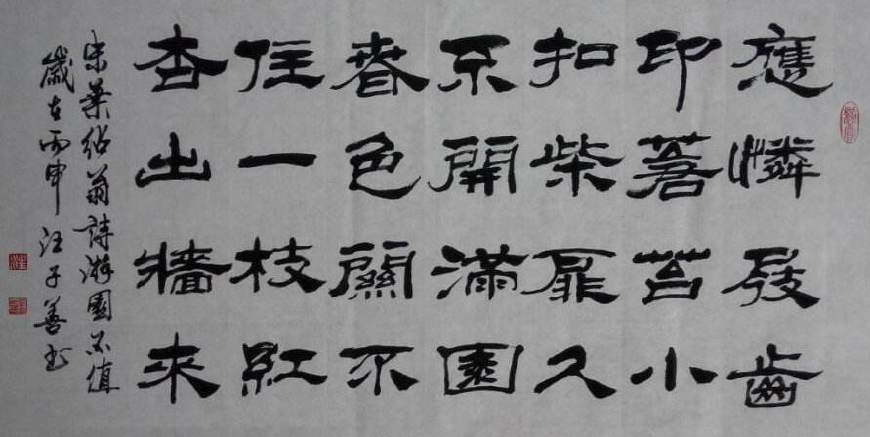 應憐屐齒
印蒼苔小
扣柴扉久
不開滿園
春色關不
住一枝紅
杏出牆來
宋葉紹翁詩游園不值
歲在丙申 汪子善书